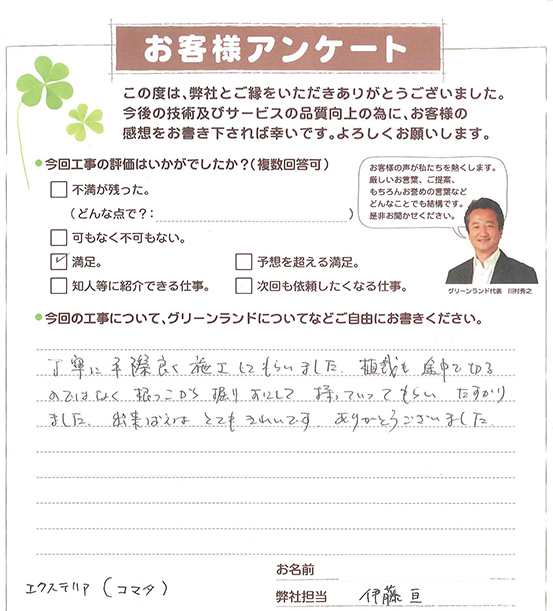 お客様アンケート
この度は、弊社とご縁をいただきありがとうございました。
今後の技術及びサービスの品質向上の為に、お客様の
感想をお書き下されば幸いです。よろしくお願いします。
今回工事の評価はいかがでしたか?(複数回答可)
不満が残った。
(どんな点で?: )
可もなく不可もない。
満足。
予想を超える満足。
知人等に紹介できる仕事。
次回も依頼したくなる仕事。
お客様の声が私たちを熱くします。
厳しいお言葉、ご提案、
もちろんお誉めの言葉など
どんなことでも結構です。
是非お聞かせください。
グリーンランド代表 川村秀之
今回の工事について、グリーンランドについてなどご自由にお書きください。
丁寧に手際良く施工してもらいました。植栽も途中で切る
のではなく根っこから掘りおこして持っていってもらい たすかり
ました。出来ばえはとてもきれいです ありがとうございました。
お名前
エクステリア(コマタ)
弊社担当 伊藤 亘